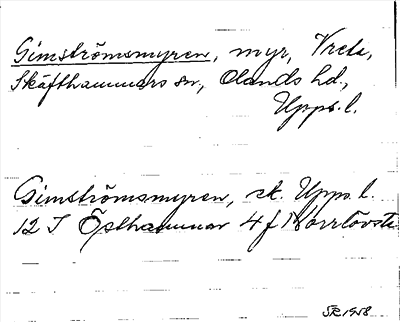 Gimströmsmyren, myr, Vreta,
Skäfthammars sn, Olands hd,
Upps. l.
Gimströmsmyren, ek. Upps. l.
12 I Östhammar 4 f Norrlövsta
SR 1958